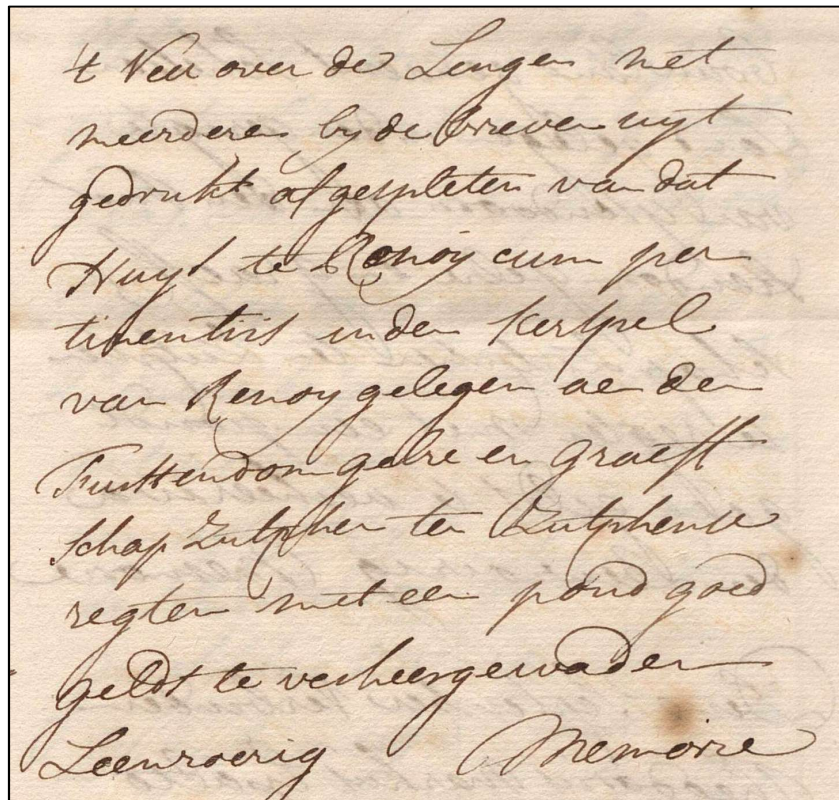 't Veer over de Lengen met
meerderen by de brieven uyt
gedrukt afgespleten van dat
Huys te Renoy cum per
tinentiis in den Kerspel
van Renoy gelegen aen den
Furstendom gelre en graeff
schap Zutphen ten Zutphense
regten met een pond goed
geldt te verheergewaden
Leenroerig Memorie